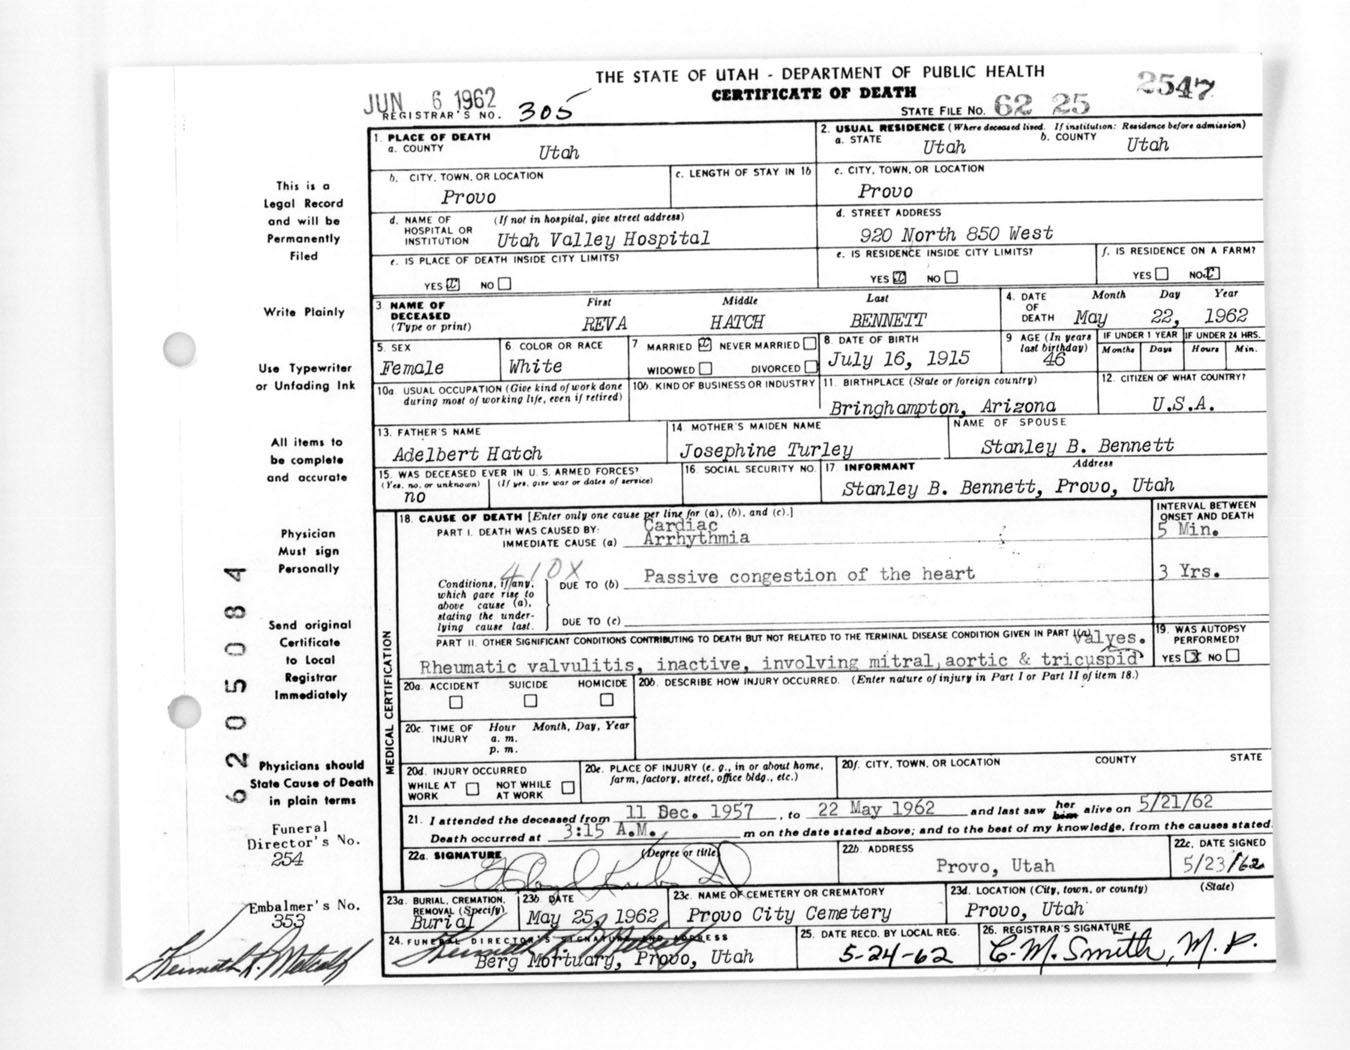 THE STATE OF UTAH - DEPARTMENT OF PUBLIC HEALTH
CERTIFICATE OF DEATH
2547
JUN 6 1962
REGISTRAR'S NO. 305
STATE FILE NO. 62 25
1. PLACE OF DEATH
a. COUNTY Utah
2. USUAL RESIDENCE (Where deceased lived. If institution: Residence before admission)
a. STATE Utah b. COUNTY Utah
b. CITY, TOWN, OR LOCATION Provo
c. LENGTH OF STAY IN 1b
c. CITY, TOWN, OR LOCATION Provo
d. NAME OF HOSPITAL OR INSTITUTION (If not in hospital, give street address) Utah Valley Hospital
d. STREET ADDRESS 920 North 850 West
e. IS PLACE OF DEATH INSIDE CITY LIMITS?
YES X NO
e. IS RESIDENCE INSIDE CITY LIMITS?
YES X NO
f. IS RESIDENCE ON A FARM?
YES NO X
3 NAME OF DECEASED (Type or print)
First Middle Last
REVA HATCH BENNETT
4. DATE OF DEATH Month Day Year
May 22, 1962
5. SEX Female
6. COLOR OR RACE White
7 MARRIED X NEVER MARRIED
WIDOWED DIVORCED
8. DATE OF BIRTH July 16, 1915
9 AGE (In years last birthday) 46
IF UNDER 1 YEAR Months Days
IF UNDER 24 HRS. Hours Min.
10a. USUAL OCCUPATION (Give kind of work done during most of working life, even if retired)
10b. KIND OF BUSINESS OR INDUSTRY
11. BIRTHPLACE (State or foreign country) Bringhampton, Arizona
12. CITIZEN OF WHAT COUNTRY? U.S.A.
13. FATHER'S NAME Adelbert Hatch
14. MOTHER'S MAIDEN NAME Josephine Turley
NAME OF SPOUSE Stanley B. Bennett
15. WAS DECEASED EVER IN U. S. ARMED FORCES?
(Yes, no, or unknown) (If yes, give war or dates of service)
no
16. SOCIAL SECURITY NO.
17. INFORMANT Address
Stanley B. Bennett, Provo, Utah
18. CAUSE OF DEATH [Enter only one cause per line for (a), (b), and (c).]
INTERVAL BETWEEN ONSET AND DEATH
PART I. DEATH WAS CAUSED BY:
IMMEDIATE CAUSE (a) Cardiac Arrhythmia 5 Min.
410X
Conditions, if any, which gave rise to above cause (a), stating the underlying cause last.
DUE TO (b) Passive congestion of the heart 3 Yrs.
DUE TO (c)
PART II. OTHER SIGNIFICANT CONDITIONS CONTRIBUTING TO DEATH BUT NOT RELATED TO THE TERMINAL DISEASE CONDITION GIVEN IN PART I(a)
Rheumatic valvulitis, inactive, involving mitral, aortic & tricuspid valves.
19. WAS AUTOPSY PERFORMED?
YES X NO
20a. ACCIDENT SUICIDE HOMICIDE
20b. DESCRIBE HOW INJURY OCCURRED. (Enter nature of injury in Part I or Part II of item 18.)
20c. TIME OF INJURY Hour Month, Day, Year
a. m.
p. m.
20d. INJURY OCCURRED
WHILE AT WORK NOT WHILE AT WORK
20e. PLACE OF INJURY (e. g., in or about home, farm, factory, street, office bldg., etc.)
20f. CITY, TOWN, OR LOCATION COUNTY STATE
21. I attended the deceased from 11 Dec. 1957, to 22 May 1962 and last saw her him alive on 5/21/62
Death occurred at 3:15 A.M., m on the date stated above; and to the best of my knowledge, from the causes stated.
22a. SIGNATURE (Degree or title)
22b. ADDRESS Provo, Utah
22c. DATE SIGNED 5/23/62
23a. BURIAL, CREMATION, REMOVAL (Specify) Burial
23b. DATE May 25, 1962
23c. NAME OF CEMETERY OR CREMATORY Provo City Cemetery
23d. LOCATION (City, town, or county) (State)
Provo, Utah
24. FUNERAL DIRECTOR'S SIGNATURE AND ADDRESS
Berg Mortuary, Provo, Utah
25. DATE RECD. BY LOCAL REG. 5-24-62
26. REGISTRAR'S SIGNATURE C. M. Smith, M. D.
MEDICAL CERTIFICATION
This is a
Legal Record
and will be
Permanently
Filed
Write Plainly
Use Typewriter
or Unfading Ink
All items to
be complete
and accurate
Physician
Must sign
Personally
Send original
Certificate
to Local
Registrar
Immediately
Physicians should
State Cause of Death
in plain terms
Funeral
Director's No.
254
Embalmer's No.
353
Kenneth R. Metcalf
6205084